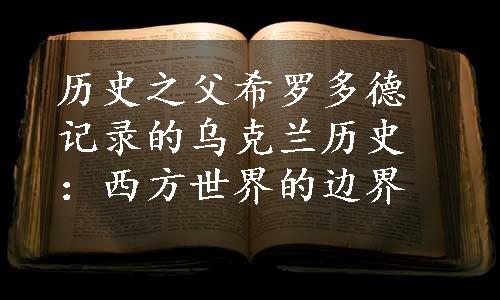 历史之父希罗多德
记录的乌克兰历史
：西方世界的边界